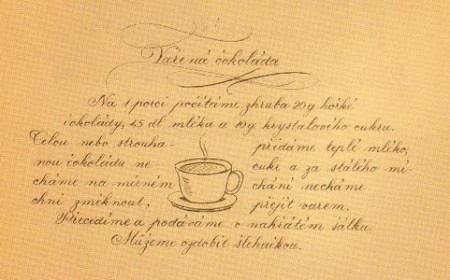 Vařená čokoláda
Na 1 porci počítáme zhruba 20g hořké
čokolády, 1,5 dl mléka a 10g krystalového cukru.
Celou nebo strouha-
nou čokoládu ne
cháme na mírném
ohni změknout,
přidáme teplé mléko,
cukr a za stálého mí-
chání necháme
přejít varem.
Přecedíme a podáváme v nahřátém šálku
Můžeme ozdobit šlehačkou.